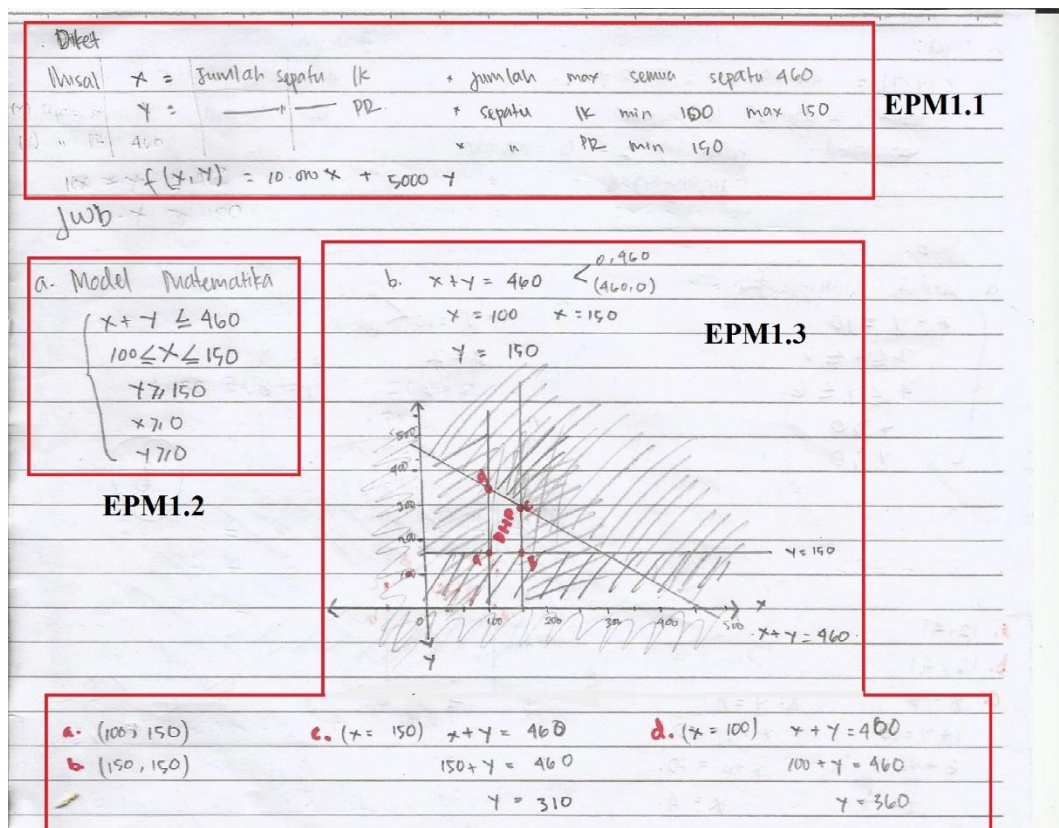 Diket
Misal x = Jumlah sepatu lk * jumlah max semua sepatu 460
y = —— " —— PR * sepatu lk min 100 max 150
* " PR min 150
f(x,y) = 10.000 x + 5000 y
EPM1.1
Jwb
a. Model Matematika
x + y ≤ 460
100 ≤ x ≤ 150
y ≥ 150
x ≥ 0
y ≥ 0
EPM1.2
b. x + y = 460 < 0,460
(460,0)
x = 100 x = 150
y = 150
EPM1.3
500
400
300
200
100
d
c
DHP
a
b
y = 150
0 100 200 300 400 500
x
x + y = 460
y
a. (100, 150) c. (x = 150) x + y = 460 d. (x = 100) x + y = 460
b (150, 150) 150 + y = 460 100 + y = 460
y = 310 y = 360